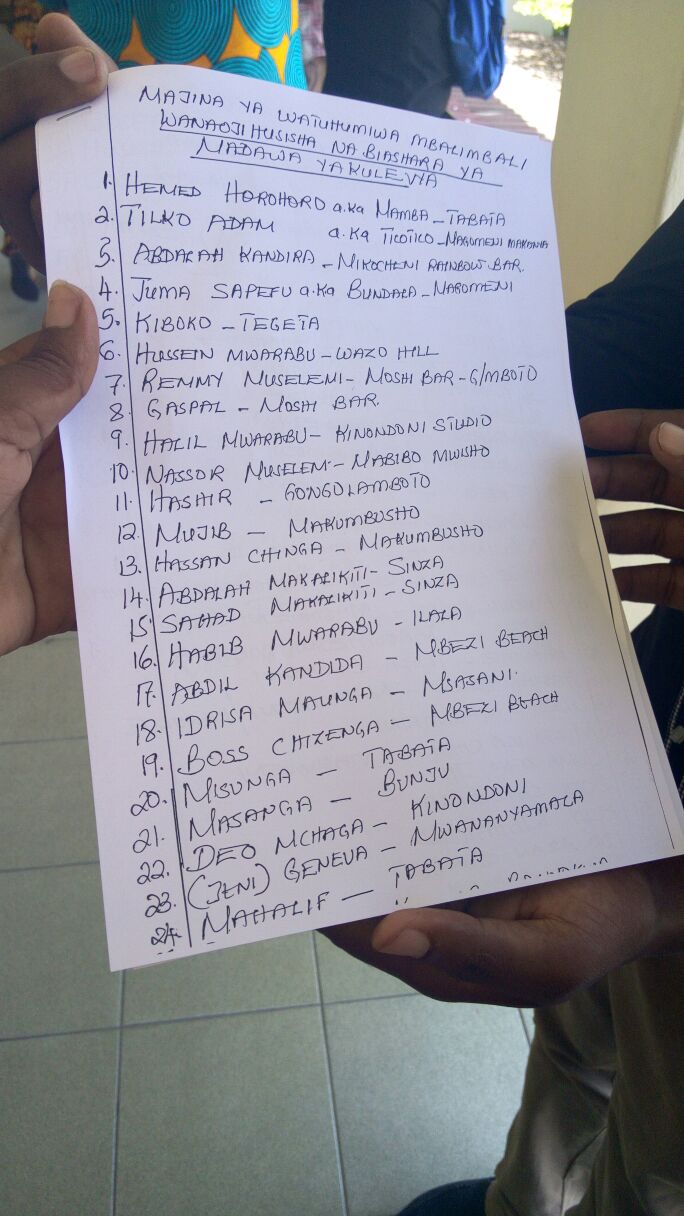 MAJINA YA WATUHUMIWA MBALIMBALI
WANAOJIHUSISHA NA BIASHARA YA
MADAWA YAKULEVYA
1. HEMED HOROHORO a.ka MAMBA - TABATA
2. TILKO ADAM a.ka TIOTICO - MAGOMENI MAKANYA
3. ABDALAH KANDIRA - MIKOCHENI RAINBOW BAR.
4. JUMA SAPEFU a.ka BUNDALA - MAGOMENI
5. KIBOKO - TEGETA
6. HUSSEIN MWARABU - WAZO HILL
7. REMMY MUSELEMI - MOSHI BAR - G/MBOTO
8. GASPAL - MOSHI BAR.
9. HALIL MWARABU - KINONDONI STUDIO
10. NASSOR MUSELEM - MABIBO MWISHO
11. HASHIR - GONGOLAMBOTO
12. MUJIB - MAKUMBUSHO
13. HASSAN CHINGA - MAKUMBUSHO
14. ABDALAH MAKALIKITI - SINZA
15. SAHAD MAKALIKITI - SINZA
16. HABIB MWARABU - ILALA
17. ABDIL KANDIDA - MBEZI BEACH
18. IDRISA MAUNGA - MSASANI.
19. BOSS CHIZENGA - MBEZI BEACH
20. MISUNGA - TABATA
21. MASANGA - BUNJU
22. DEO MCHAGA - KINONDONI
23. (JENI) GENEVA - MWANANYAMALA
24. MAHALIF - TABATA